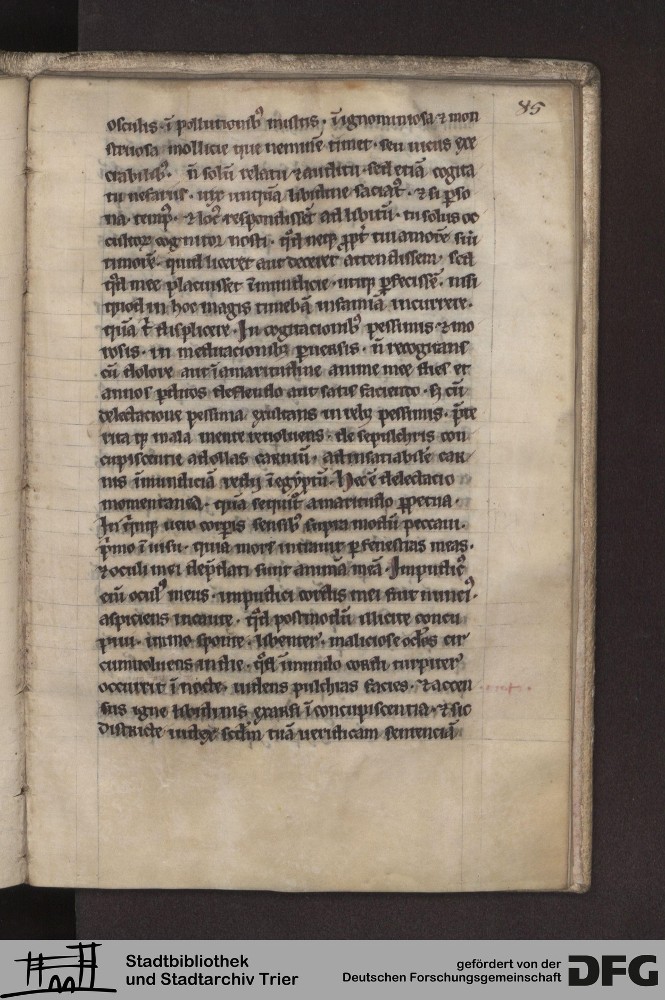 85
osculis · ī pollutionib9 multis · ī ignominiosa ⁊ mon
struosa mollicie que neminē timet · seu meus exe
crabilib9 · n̄ solū relatu ⁊ auditu · sed etiā cogita
tu nefariis · vix unquā libidine
na · temp9 · ⁊ loc9 respondissēt ad libitū · tu solus oc
cultorꝝ cognitor nosti · qd neqꝫ ppt tui amorē siu
timorē · quid liceret aut deceret attendissem · sed
qd mee placuisset īmundicie · utiqꝫ pfecissē · nisi
quod in hoc magis timebā infamiā incurrere ·
quā t displicere · In cogitacionib9 pessimis ⁊ mo
rosis · in meditacionibꝫ puersis · n̄ recogitans
cū dolore aut ī amaritudine anime mee dies et
annos pditos deflendo aut satis faciendo · sꝫ cū
delectacione pessima exultans in rebꝫ pessimis · pte
rita qꝫ mala mente reuoluens · de sepulchris con
cupiscentie ad ollas carniū · ad insatiabilē car
nis īmundiciā redii ī egyptū · Hec ē delectacio
momentanea · quā sequit amaritudo ppetua ·
In qinqꝫ uero corpis sensib9 supra modū peccaui ·
pmo ī uisu · quia mors intrauit p fenestras meas ·
⁊ oculi mei depdati sunt animā meā · Impudic9
eiū ocul9 meus · impudici cordis mei fuit nunci9 ·
aspiciens incaute · qd postmodū illicite concu
piui · immo sponte · libenter · maliciose oclos cir
cumuoluens in die · qd īmundo cordi turpiter
occurrit ī nocte · uidens pulchras facies · ⁊ accen
sus igne libidinis exarsi ī concupiscentia · ⁊ sic
districte iudex scdm tuā ueridicam sentenciā
Stadtbibliothek
und Stadtarchiv Trier
gefördert von der
Deutschen Forschungsgemeinschaft
DFG